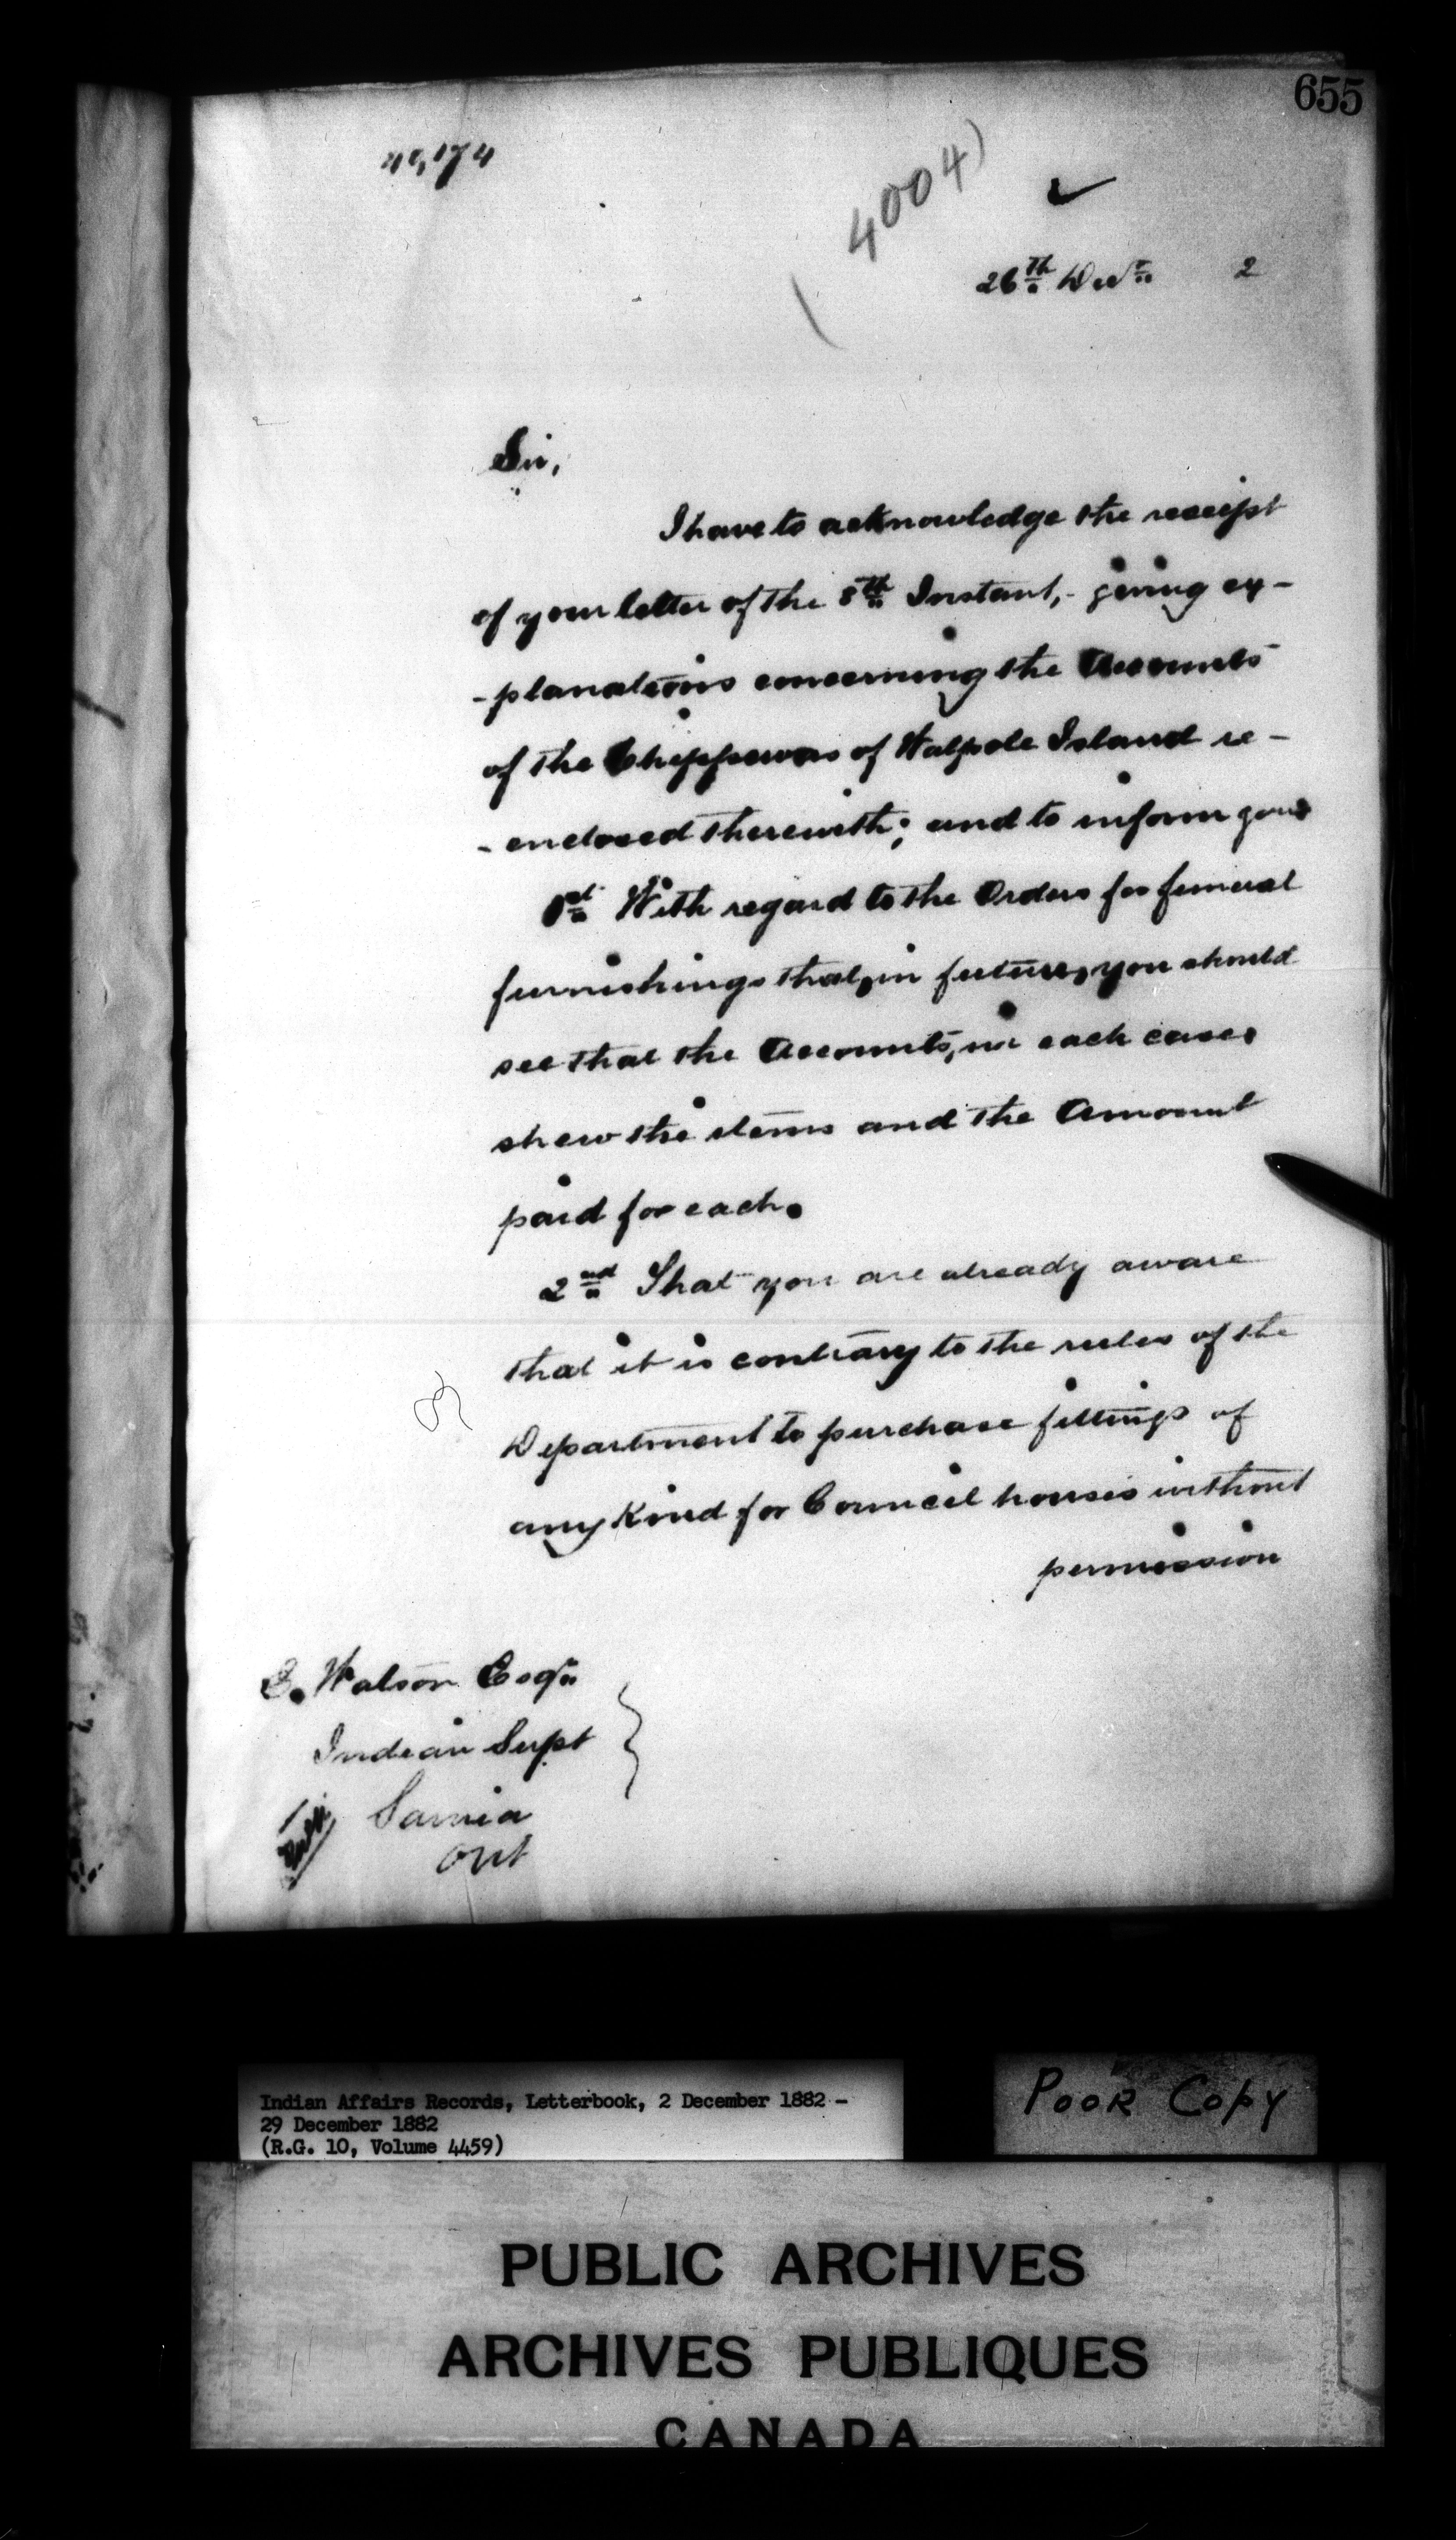 655
40,174
4004)
26th Decr 2
Sir,
I have to acknowledge the receipt
of your letter of the 8th Instant,- giving ex-
-planations concerning the Accounts
of the Chippewas of Walpole Island re-
-enclosed therewith; and to inform you
1st With regard to the Orders for funeral
furnishings that, in future, you should
see that the Accounts, in each case,
shew the items and the Amount
paid for each.
2nd That you are already aware
that it is contrary to the rules of the
Department to purchase fittings of
any Kind for Council houses without
permission
E. Watson Esqr
Indian Supt
Sarnia
Ont
Indian Affairs Records, Letterbook, 2 December 1882 -
29 December 1882
(R.G. 10, Volume 4459)
POOR COPY
PUBLIC ARCHIVES
ARCHIVES PUBLIQUES
CANADA